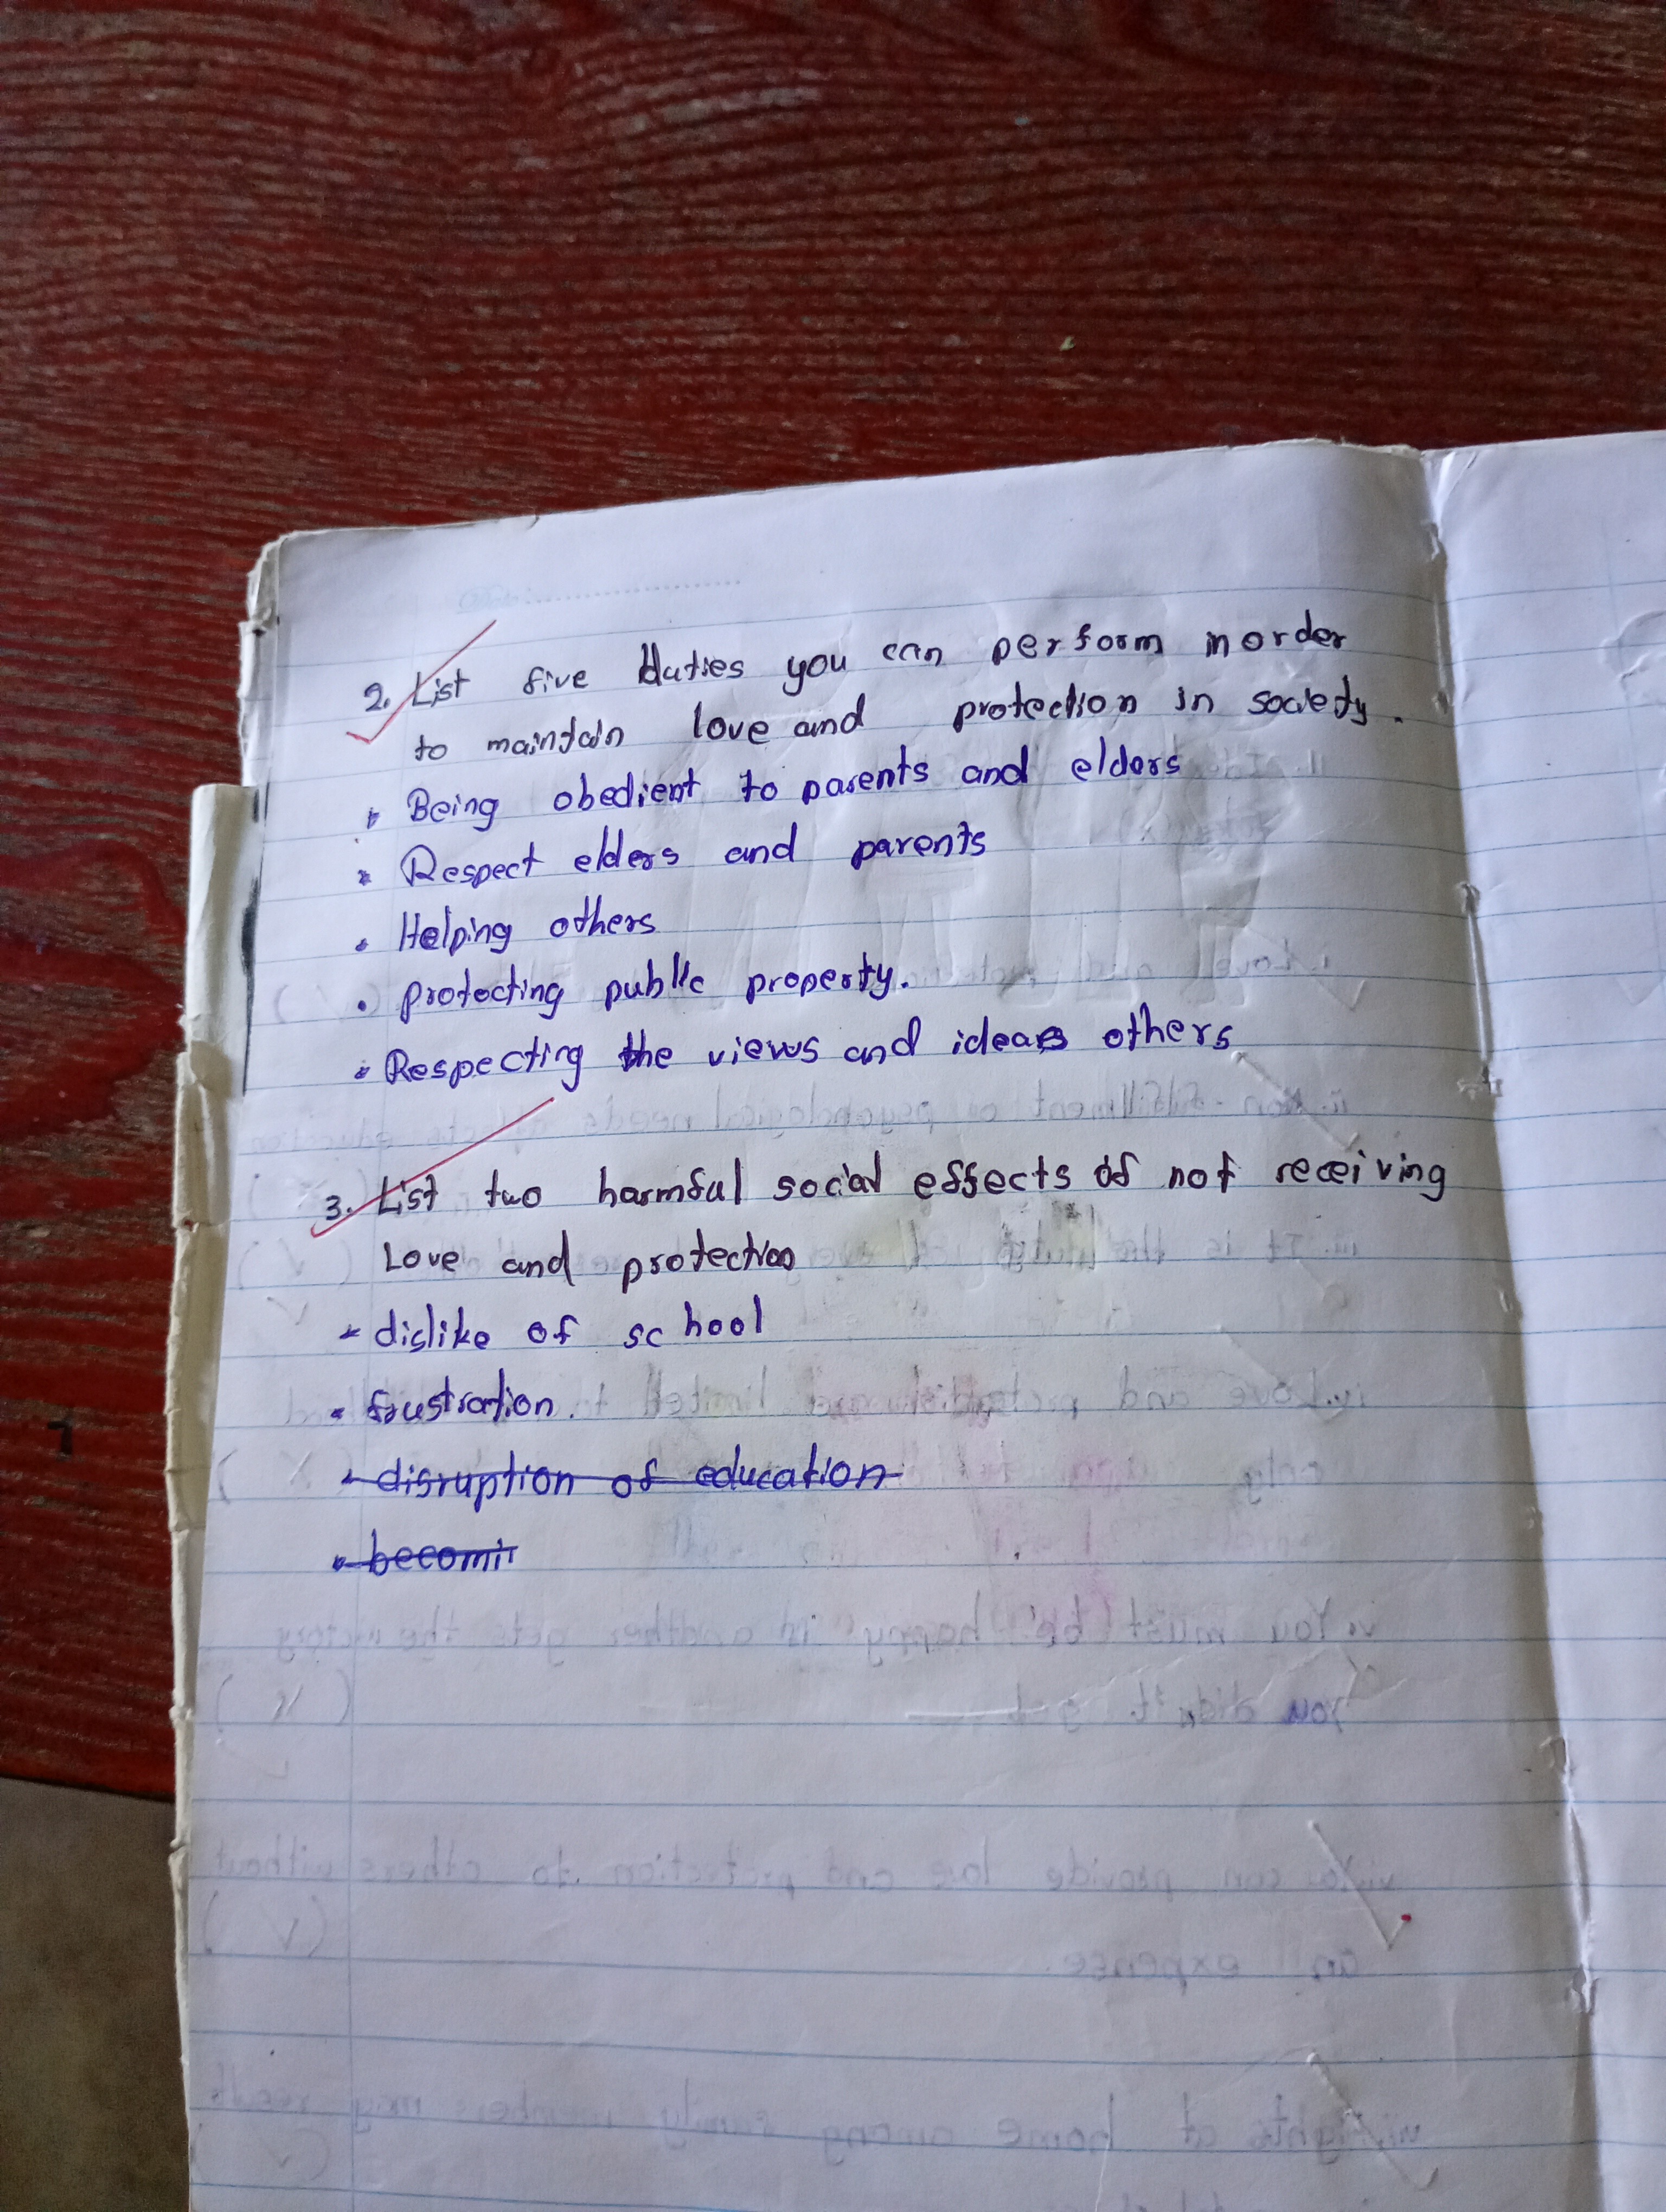 2. List five duties you can perform inorder
to maintain love and protection in society.
• Being obedient to parents and elders
• Respect elders and parents
• Helping others
• protecting public property.
• Respecting the views and ideas others
3. List two harmful social effects of not receiving
Love and protection
• dislike of school
• frustration.
• disruption of education
• becomi